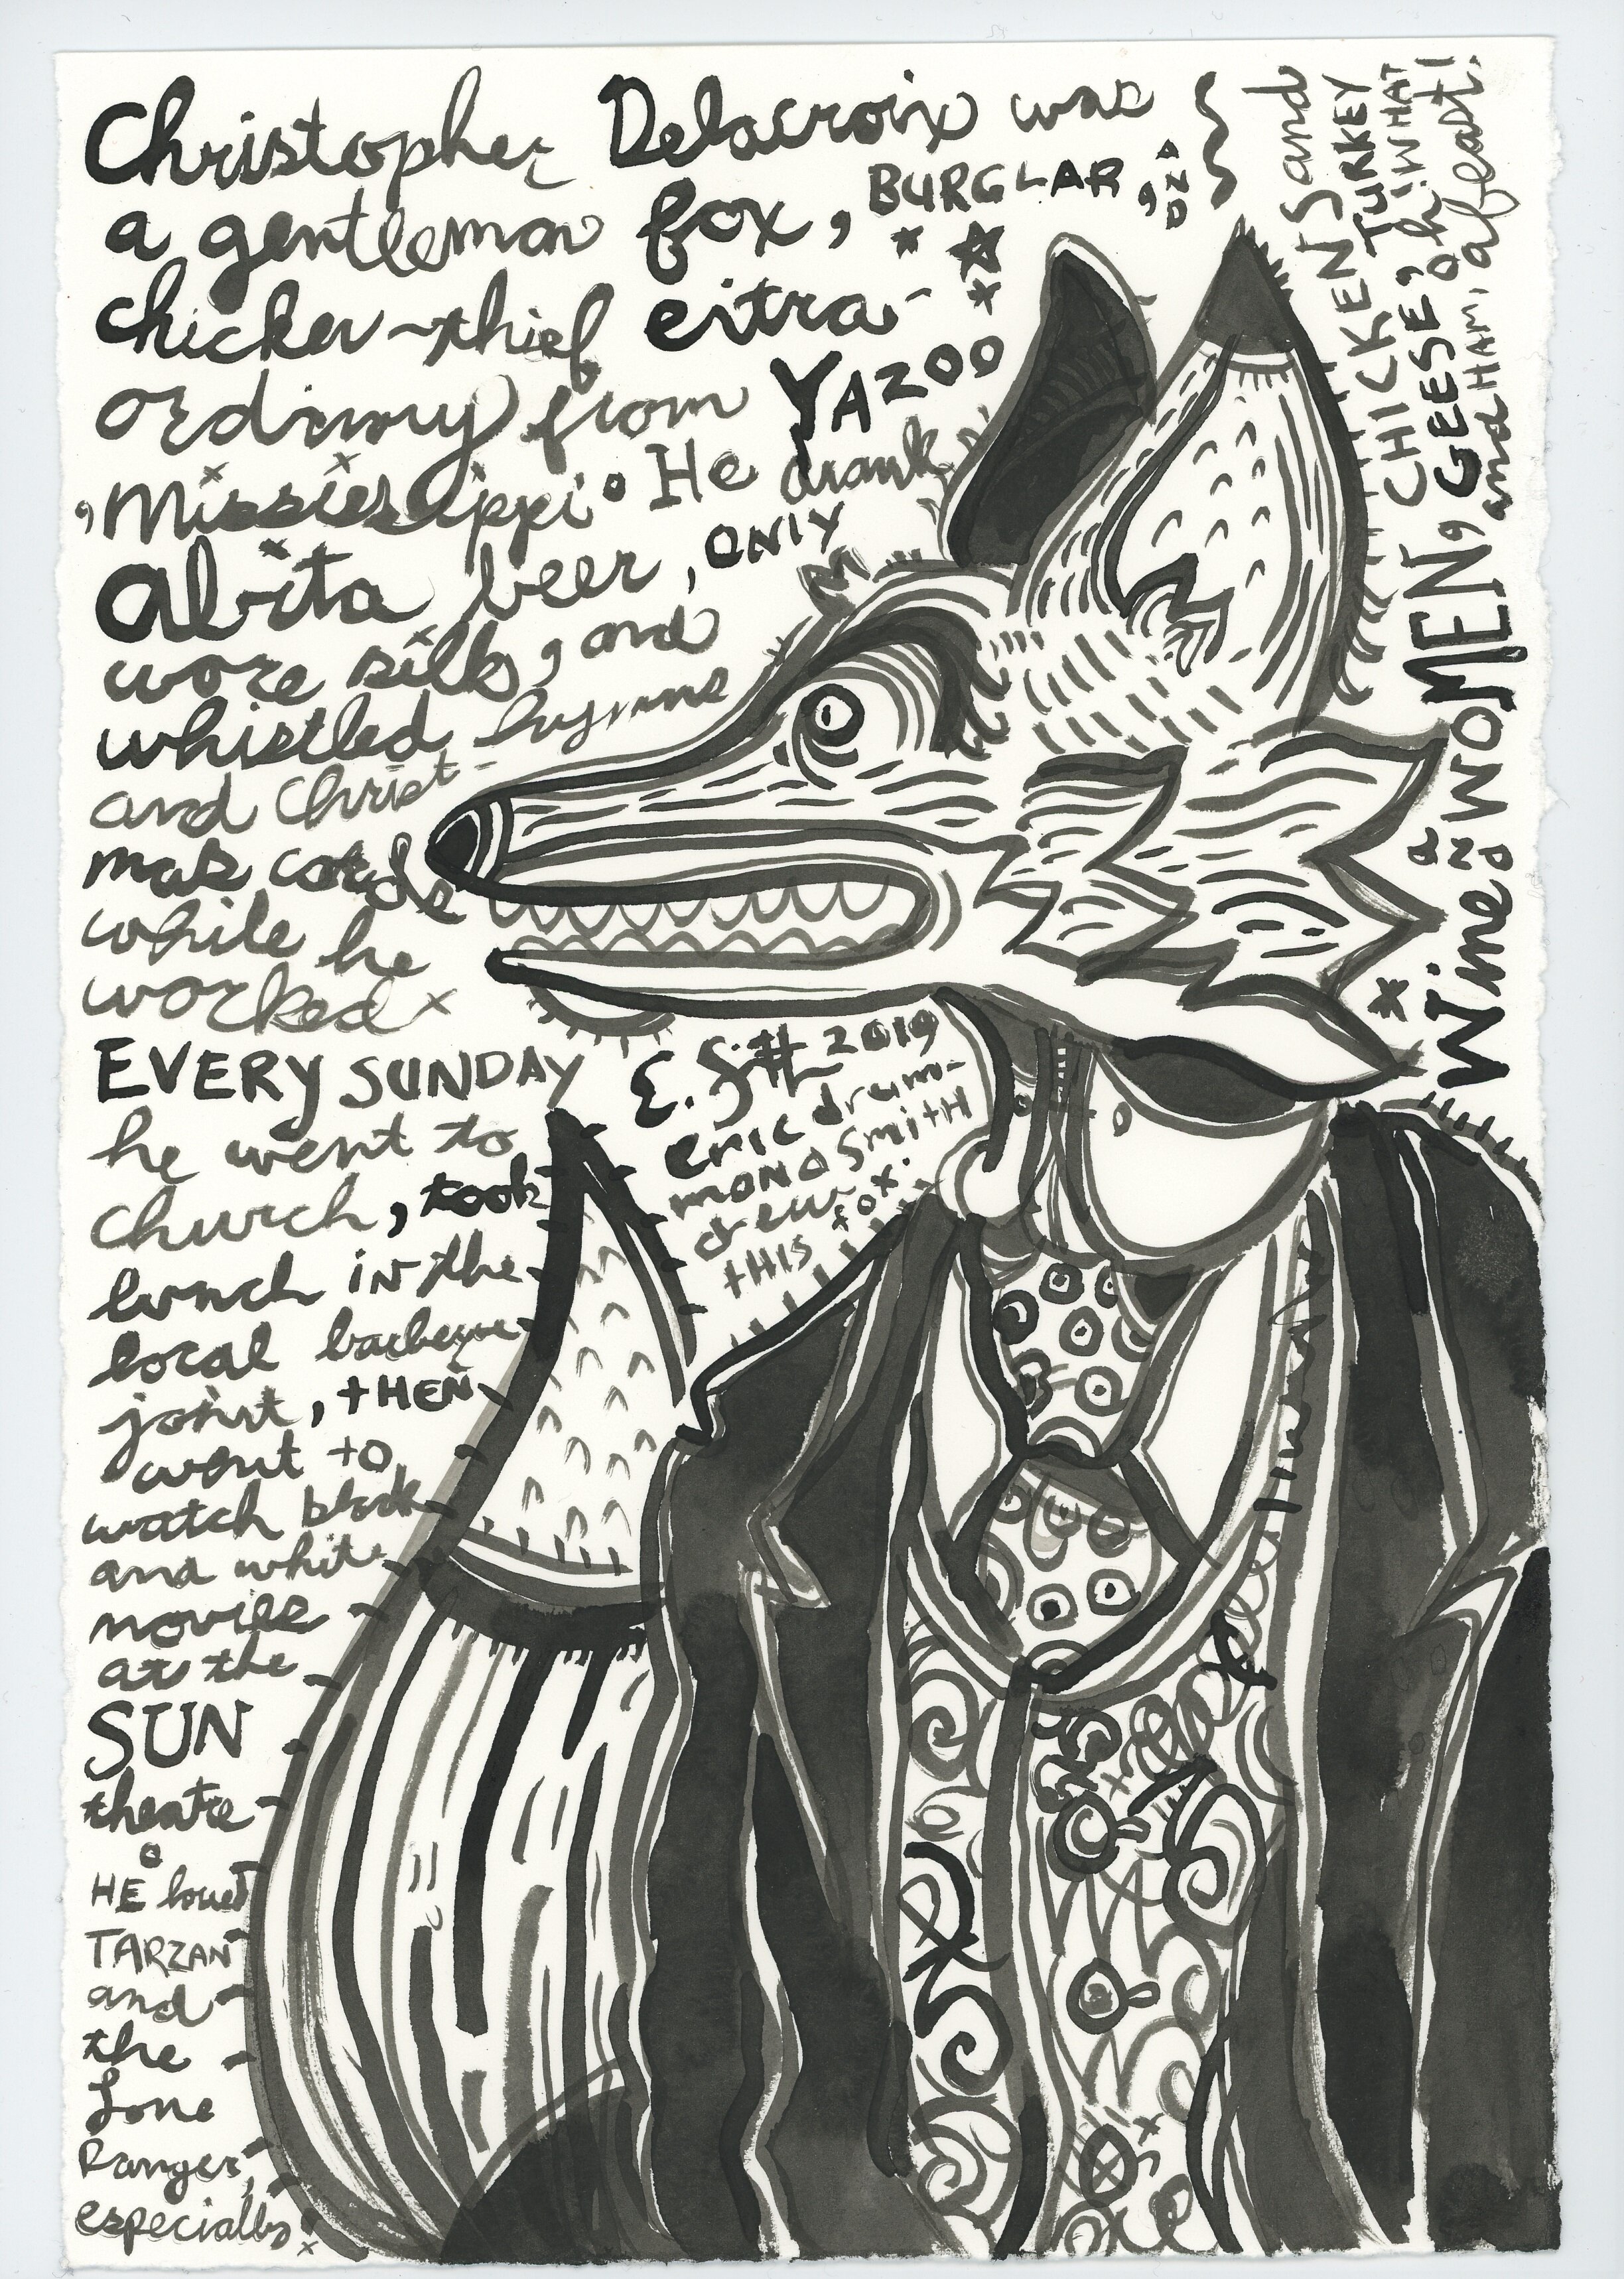 Christopher Delacroix was
a gentleman fox, BURGLAR, AND
chicken-thief extra-
ordinary from YAZOO
, Mississippi. He drank
Abita beer, ONLY
wore silk, and
whistled hymns
and Christ-
mas carols
while he
worked x
EVERY SUNDAY
he went to
church, took
lunch in the
local barbecue
joint, tHEN
went to
watch black
and white
movies
at the
SUN
theatre.
HE loved
TARZAN
and
the
Lone
Ranger,
especially.
E. S# 2019
eric drum-
mond Smith
drew
tHIS fox.
Wine and WOMEN, CHICKENS and
GEESE, TURKEY
and HAM, oh! WHAT
a feast!